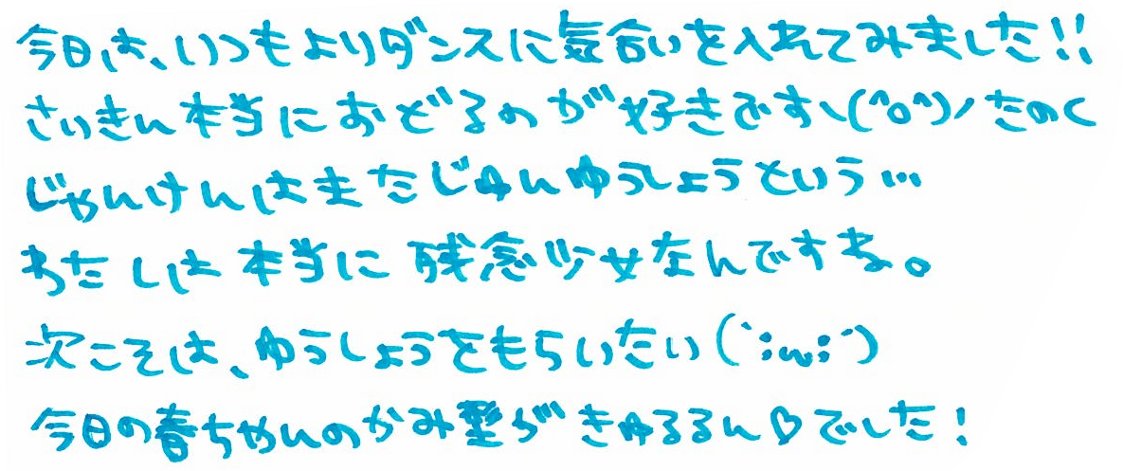 今日は、いつもよりダンスに気合いを入れてみました!!
さいきん本当におどるのが好きです＼(^o^)／たのく
じゃんけんはまたじゅんゆうしょうという…
わたしは本当に残念少女なんですね。
次こそは、ゆうしょうをもらいたい(｀;ω;´)
今日の春ちゃんのかみ型がきゅるるん♡でした!